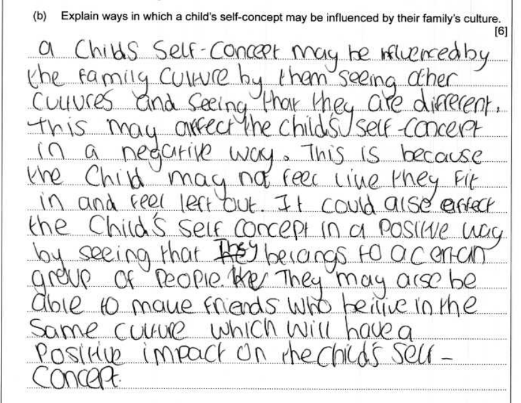 (b) Explain ways in which a child's self-concept may be influenced by their family's culture.
[6]
a Childs Self-Concept may be influenced by
the family Culture by them seeing other
Cultures and Seeing that they are different.
this may affect the childs self-concept
in a negative way. This is because
the Child may not feel like they Fit
in and feel left out. It could also effect
the Child's Self Concept in a Positive way
by seeing that they belongs to a certain
group of People. They may also be
able to make friends who belive in the
Same Culture which will have a
Positive impact on the child's self-
Concept.